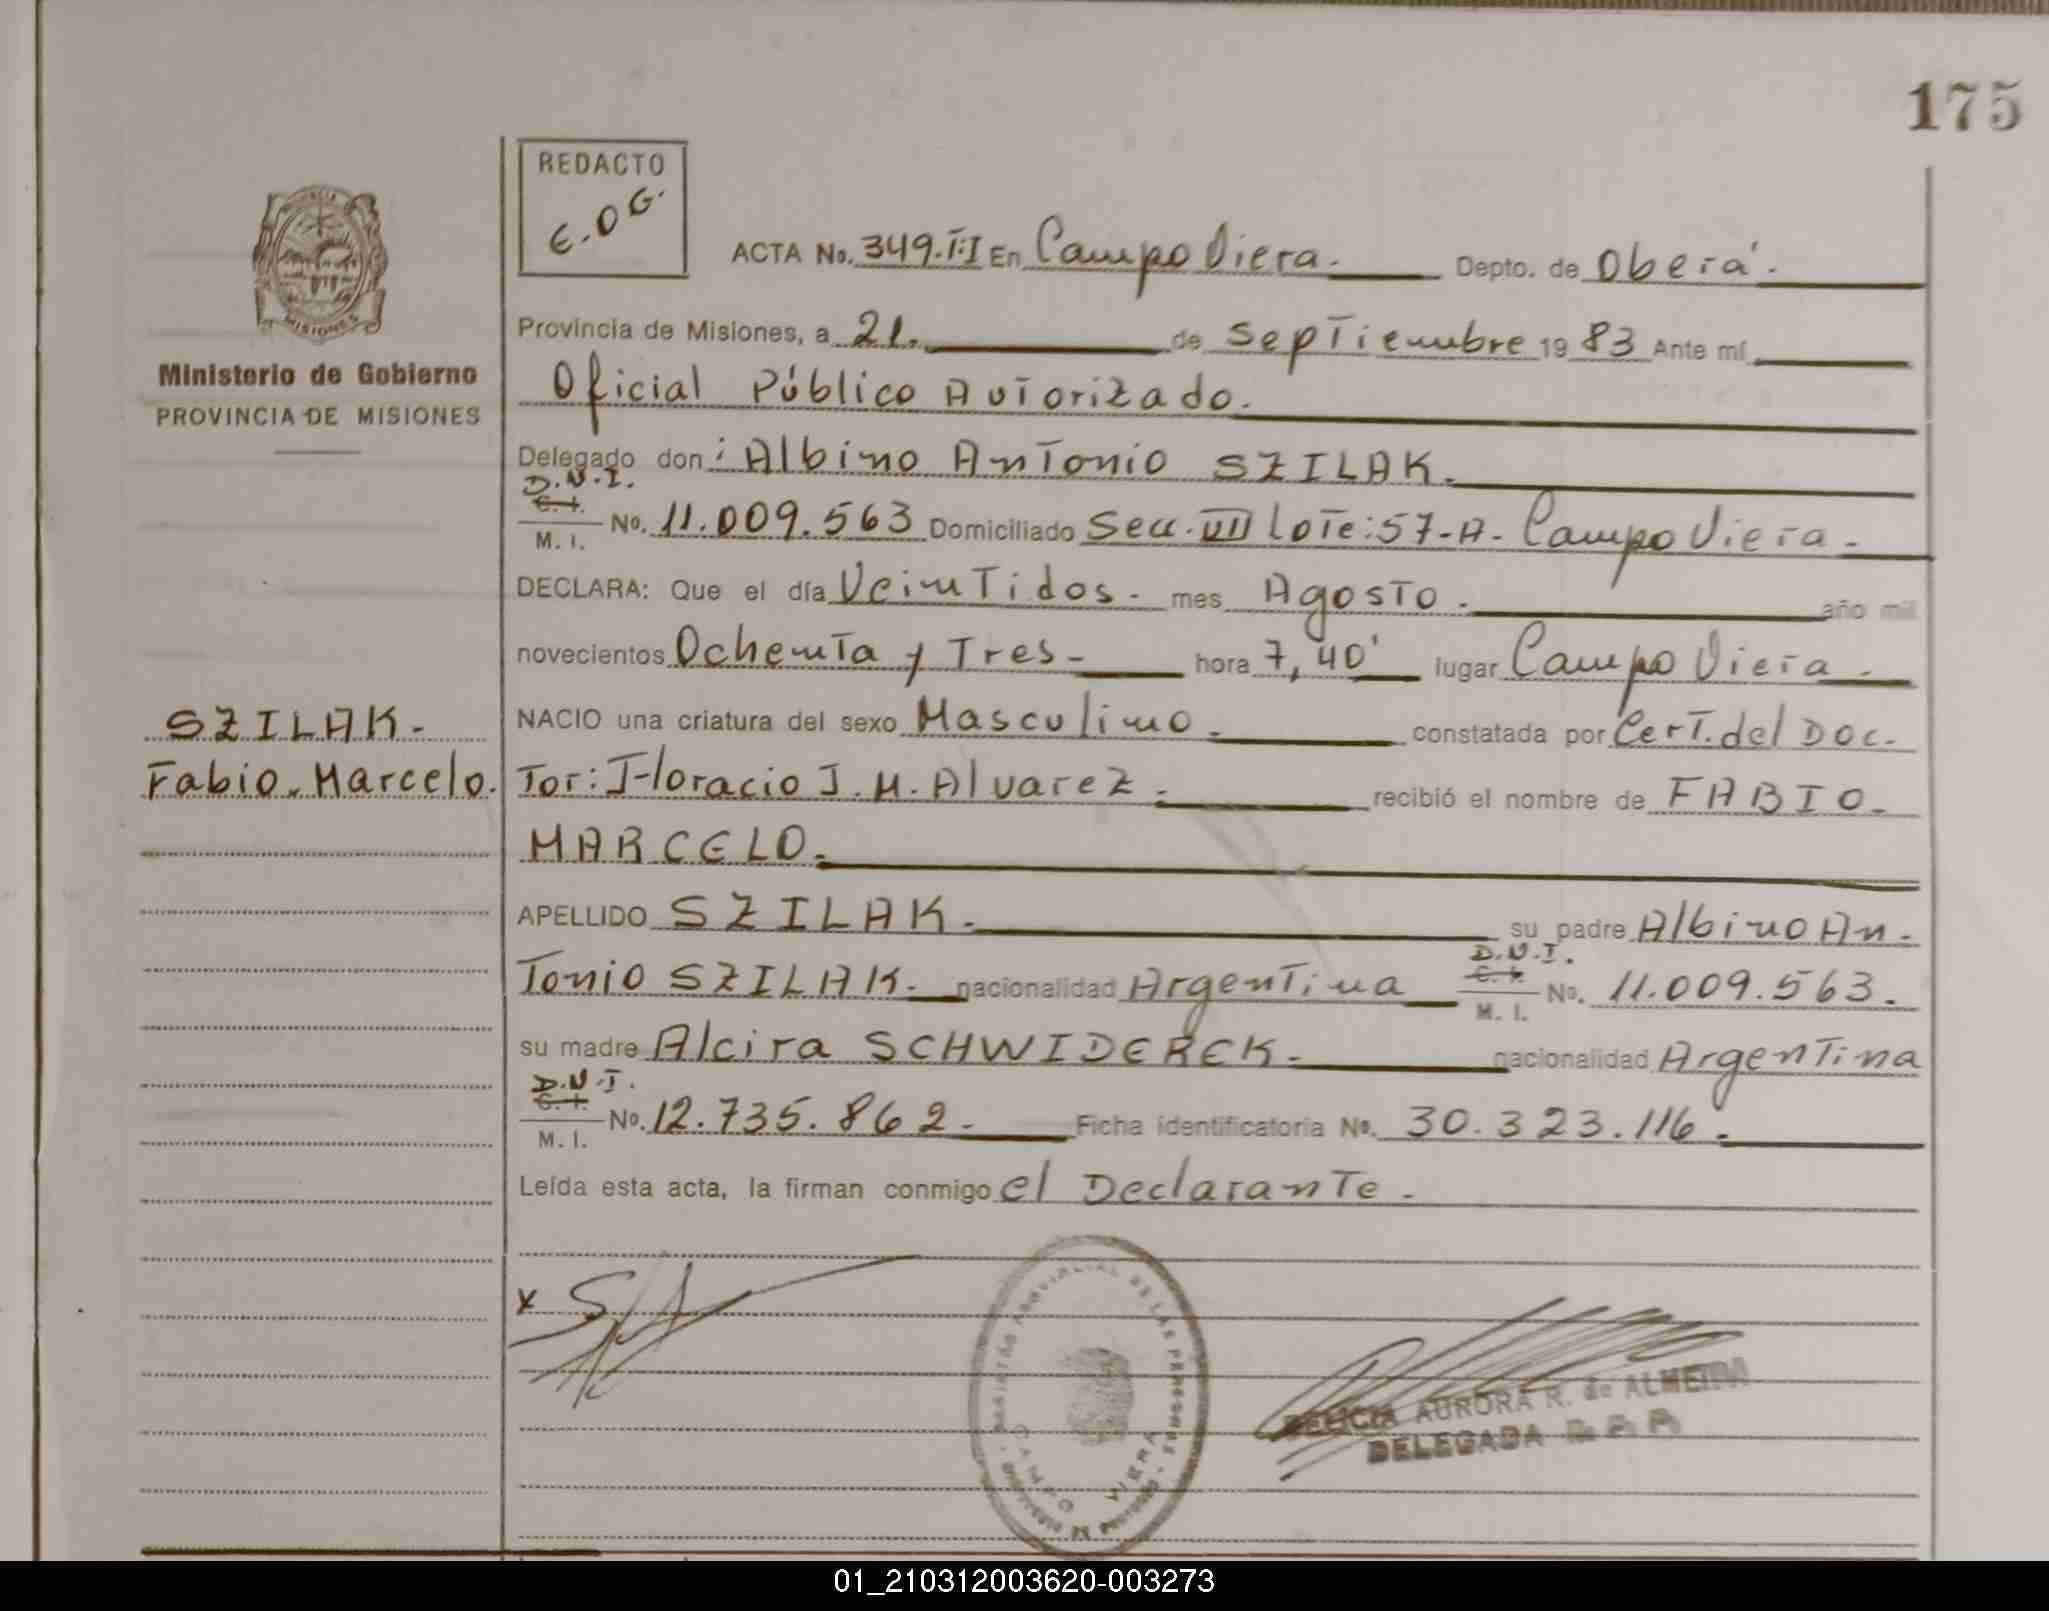 175
REDACTO
E.O.G.
ACTA No. 349.T:I En Campo Viera. Depto. de Oberá.
Provincia de Misiones, a 21. de Septiembre 1983 Ante mí
Ministerio de Gobierno
PROVINCIA DE MISIONES
MISIONES
Oficial Público Autorizado.
Delegado don: Albino Antonio SZILAK.
D.N.I.
C. I.
M. I.
No. 11.009.563 Domiciliado Secc. VII Lote: 57-A- Campo Viera.
DECLARA: Que el día Veintidos. mes Agosto. año mil
novecientos Ochenta y Tres- hora 7,40' lugar Campo Viera.
SZILAK.
Fabio Marcelo.
NACIO una criatura del sexo Masculino. constatada por Cert. del Doc-
tor: Horacio J. M. Alvarez. recibió el nombre de FABIO-
MARCELO.
APELLIDO SZILAK. su padre Albino An-
tonio SZILAK. nacionalidad Argentina D.N.I. C. I. M. I. No. 11.009.563.
su madre Alcira SCHWIDEREK. nacionalidad Argentina
D.N.I.
C. I.
M. I.
No. 12.735.862. Ficha identificatoria No. 30.323.116.
Leída esta acta, la firman conmigo el Declarante.
x
PROVINCIAL DE LAS PERSONAS
CAMPO VIERA
DELICIA AURORA R. de ALMEIDA
DELEGADA
01_210312003620-003273